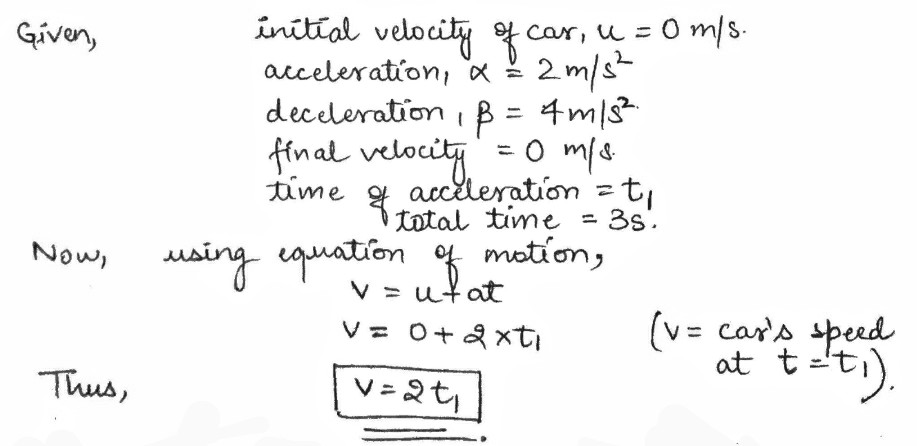 Given, initial velocity of car, u = 0 m/s.
acceleration, α = 2 m/s²
deceleration, β = 4 m/s².
final velocity = 0 m/s.
time of acceleration = t₁
total time = 3s.
Now, using equation of motion,
v = u + at
v = 0 + 2 × t₁ (v = car's speed
at t = t₁).
Thus, v = 2t₁